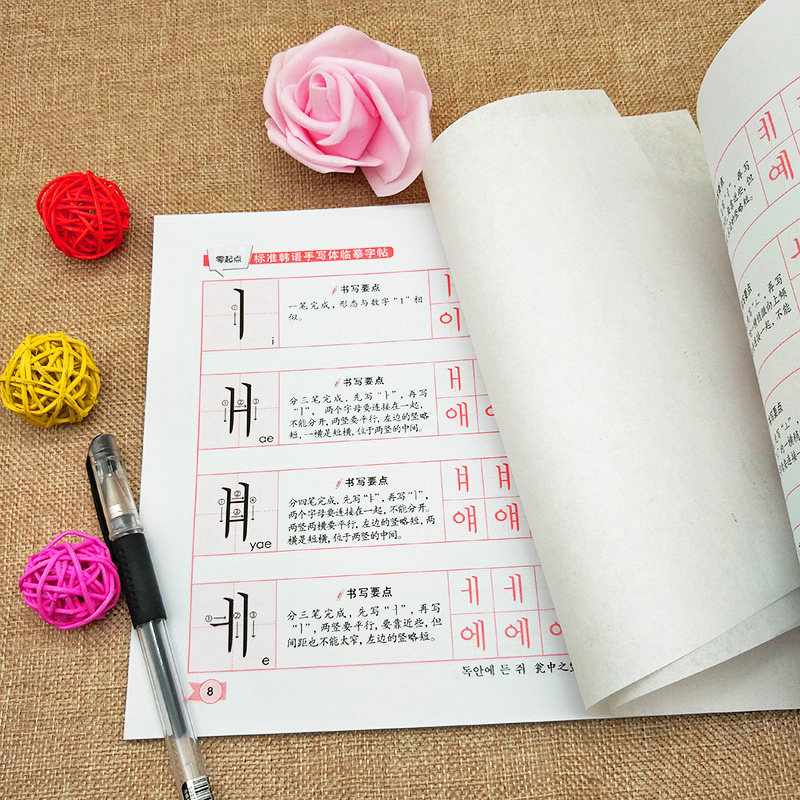 零起点 标准韩语手写体临摹字帖
ㅣ
①
i
书写要点
一笔完成，形态与数字“1”相
似。
ㅣ
이
ㅐ
① ② ③
ae
书写要点
分三笔完成，先写“ㅏ”，再写
“ㅣ”，两个字母要连接在一起，
不能分开，两竖要平行，左边的竖略
短，一横是短横，位于两竖的中间。
ㅐ
애
ㅒ
① ② ③ ④
yae
书写要点
分四笔完成，先写“ㅑ”，再写“ㅣ”，
两个字母要连接在一起，不能分开。
两竖两横要平行，左边的竖略短，两
横是短横，位于两竖的中间。
ㅒ ㅒ
얘 얘
ㅔ
① ② ③
e
书写要点
分三笔完成，先写“ㅓ”，再写
“ㅣ”，两竖要平行，要靠近些，但
间距也不能太窄，左边的竖略短。
ㅔ ㅔ
에 에 에
독안에 든 쥐 瓮中之
8
ㅖ
예
再写
要靠近些，但
的竖略短。
再写
向上倾
连接一起，不能